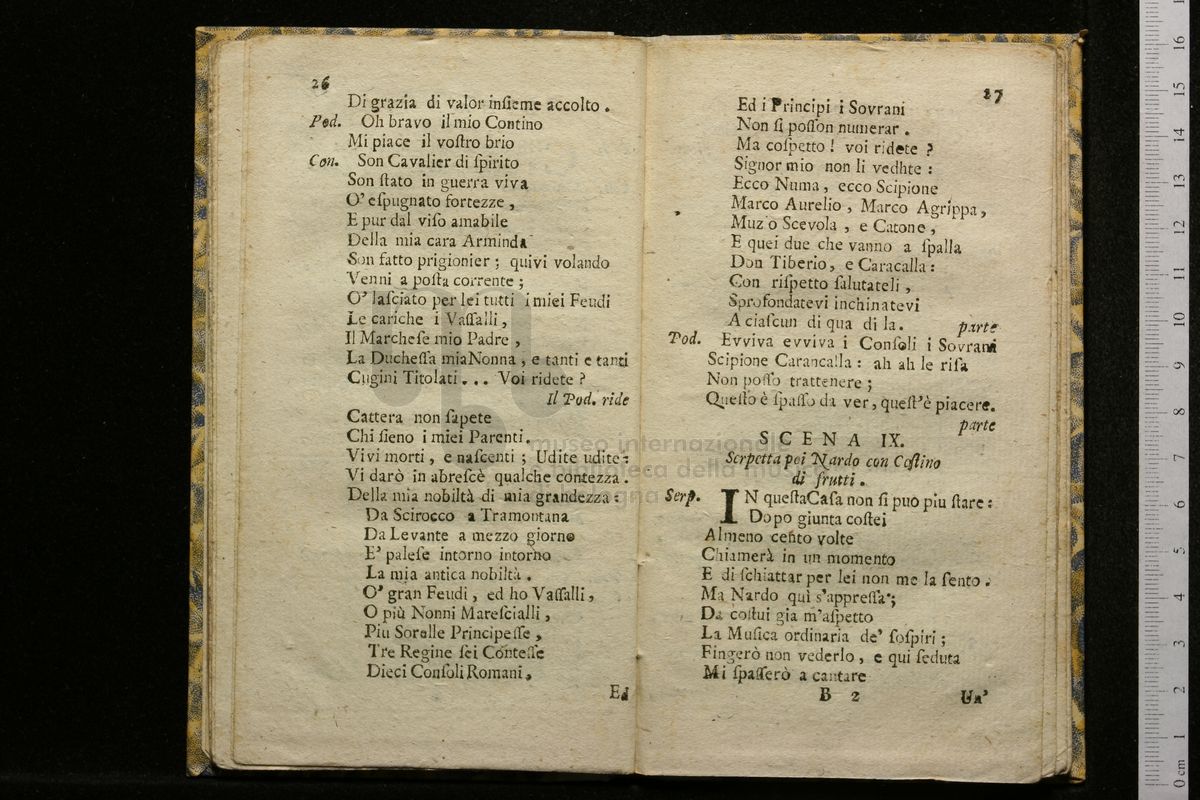 26
Di grazia di valor inſieme accolto.
Pod. Oh bravo il mio Contino
Mi piace il voſtro brio
Con. Son Cavalier di ſpirito
Son ſtato in guerra viva
O' eſpugnato fortezze,
E pur dal viſo amabile
Della mia cara Arminda
Son fatto prigionier; quivi volando
Venni a poſta corrente;
O' laſciato per lei tutti i miei Feudi
Le cariche i Vaſſalli,
Il Marcheſe mio Padre,
La Ducheſſa mia Nonna, e tanti e tanti
Cugini Titolati... Voi ridete?
Il Pod. ride
Cattera non ſapete
Chi ſieno i miei Parenti.
Vivi morti, e naſcenti; Udite udite:
Vi darò in abreſcè qualche contezza.
Della mia nobiltà di mia grandezza:
Da Scirocco a Tramontana
Da Levante a mezzo giorno
E' paleſe intorno intorno
La mia antica nobiltà.
O' gran Feudi, ed ho Vaſſalli,
O più Nonni Mareſcialli,
Piu Sorelle Principeſſe,
Tre Regine ſei Conteſſe
Dieci Conſoli Romani,
Ed
27
Ed i Principi i Sovrani
Non ſi poſſon numerar.
Ma coſpetto! voi ridete?
Signor mio non li vedhte:
Ecco Numa, ecco Scipione
Marco Aurelio, Marco Agrippa,
Muzio Scevola, e Catone,
E quei due che vanno a ſpalla
Don Tiberio, e Caracalla:
Con riſpetto ſalutateli,
Sprofondatevi inchinatevi
A ciaſcun di qua di la. parte
Pod. Evviva evviva i Conſoli i Sovrani
Scipione Carancalla: ah ah le riſa
Non poſſo trattenere;
Queſto è ſpaſſo da ver, queſt'è piacere.
parte
SCENA IX.
Serpetta poi Nardo con Ceſtino
di frutti.
Serp. IN queſta Caſa non ſi può piu ſtare:
Dopo giunta coſtei
Almeno cento volte
Chiamerà in un momento
E di ſchiattar per lei non me la ſento.
Ma Nardo quì s'appreſſa;
Da coſtui gia m'aſpetto
La Muſica ordinaria de' ſoſpiri;
Fingerò non vederlo, e qui ſeduta
Mi ſpaſſerò a cantare
B 2
Un'
museo internazionale
e biblioteca della musica
bologna
0 cm 1 2 3 4 5 6 7 8 9 10 11 12 13 14 15 16